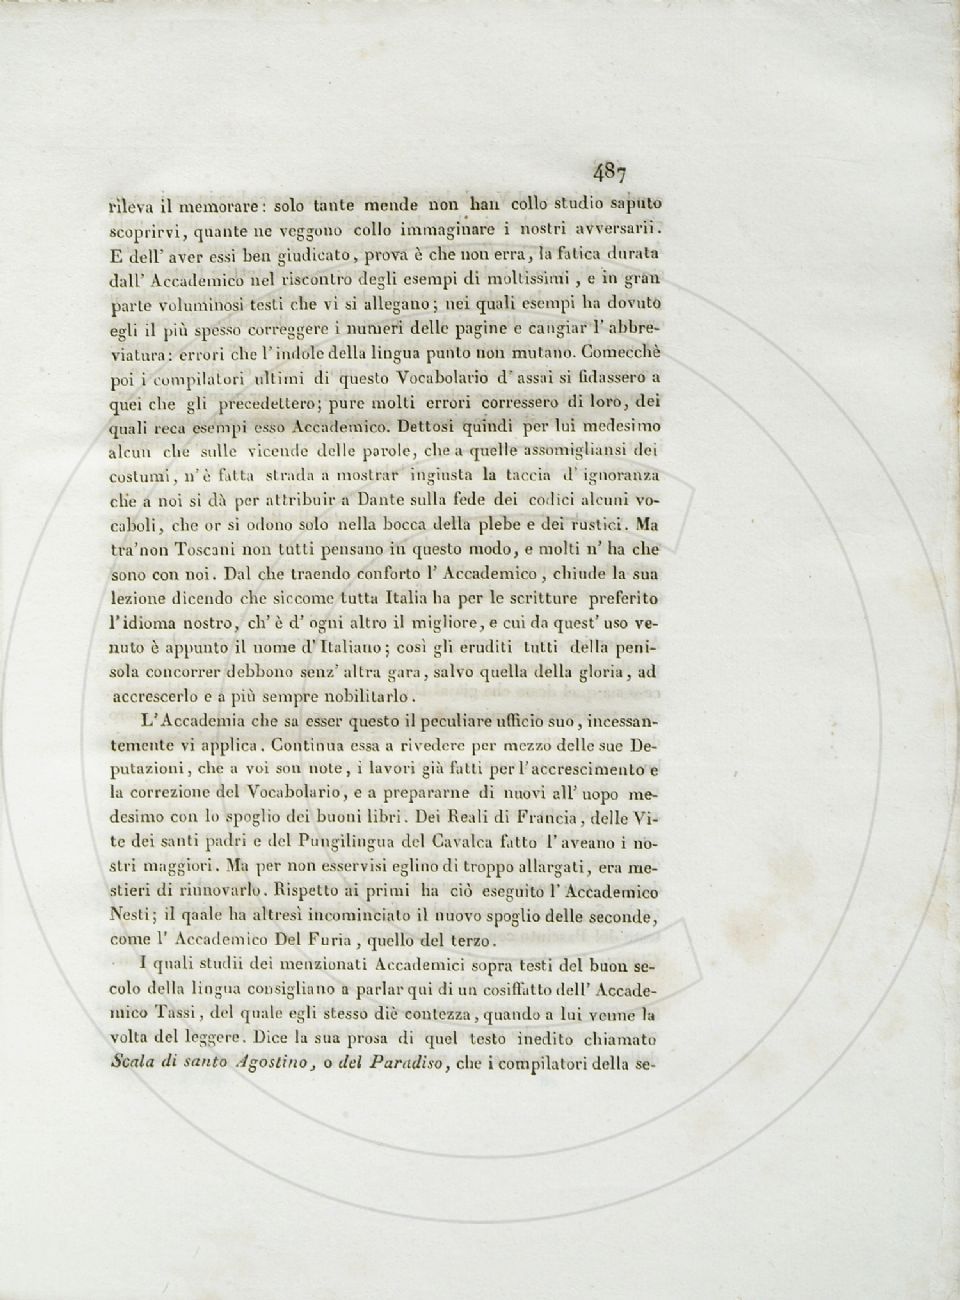 487
rileva il memorare: solo tante mende non han collo studio saputo
scoprirvi, quante ne veggono collo immaginare i nostri avversarii.
E dell' aver essi ben giudicato, prova è che non erra, la fatica durata
dall' Accademico nel riscontro degli esempi di moltissimi, e in gran
parte voluminosi testi che vi si allegano; nei quali esempi ha dovuto
egli il più spesso correggere i numeri delle pagine e cangiar l' abbre-
viatura: errori che l'indole della lingua punto non mutano. Comecchè
poi i compilatori ultimi di questo Vocabolario d' assai si fidassero a
quei che gli precedettero; pure molti errori corressero di loro, dei
quali reca esempi esso Accademico. Dettosi quindi per lui medesimo
alcun che sulle vicende delle parole, che a quelle assomigliansi dei
costumi, n'è fatta strada a mostrar ingiusta la taccia d' ignoranza
che a noi si dà per attribuir a Dante sulla fede dei codici alcuni vo-
caboli, che or si odono solo nella bocca della plebe e dei rustici. Ma
tra'non Toscani non tutti pensano in questo modo, e molti n' ha che
sono con noi. Dal che traendo conforto l' Accademico, chiude la sua
lezione dicendo che siccome tutta Italia ha per le scritture preferito
l'idioma nostro, ch' è d' ogni altro il migliore, e cui da quest' uso ve-
nuto è appunto il nome d'Italiano; così gli eruditi tutti della peni-
sola concorrer debbono senz' altra gara, salvo quella della gloria, ad
accrescerlo e a più sempre nobilitarlo.
L'Accademia che sa esser questo il peculiare ufficio suo, incessan-
temente vi applica. Continua essa a rivedere per mezzo delle sue De-
putazioni, che a voi son note, i lavori già fatti per l'accrescimento e
la correzione del Vocabolario, e a prepararne di nuovi all' uopo me-
desimo con lo spoglio dei buoni libri. Dei Reali di Francia, delle Vi-
te dei santi padri e del Pungilingua del Cavalca fatto l' aveano i no-
stri maggiori. Ma per non esservisi eglino di troppo allargati, era me-
stieri di rinnovarlo. Rispetto ai primi ha ciò eseguito l' Accademico
Nesti; il qaale ha altresì incominciato il nuovo spoglio delle seconde,
come l' Accademico Del Furia, quello del terzo.
I quali studii dei menzionati Accademici sopra testi del buon se-
colo della lingua consigliano a parlar qui di un cosiffatto dell' Accade-
mico Tassi, del quale egli stesso diè contezza, quando a lui venne la
volta del leggere. Dice la sua prosa di quel testo inedito chiamato
Scala di santo Agostino, o del Paradiso, che i compilatori della se-